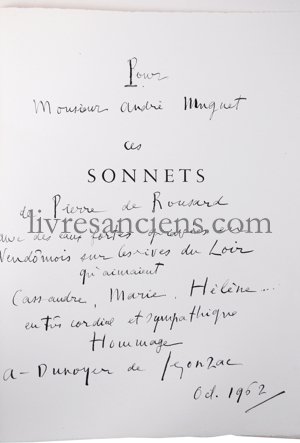 Pour
Monsieur André Muguet
ces
SONNETS
de Pierre de Ronsard
livresanciens.com
avec des eaux fortes gravées en
Vendômois sur les rives du Loir
qu'aimaient
Cassandre, Marie, Hélène...
en très cordial et sympathique
Hommage
a - Dunoyer de Segonzac
Oct. 1962